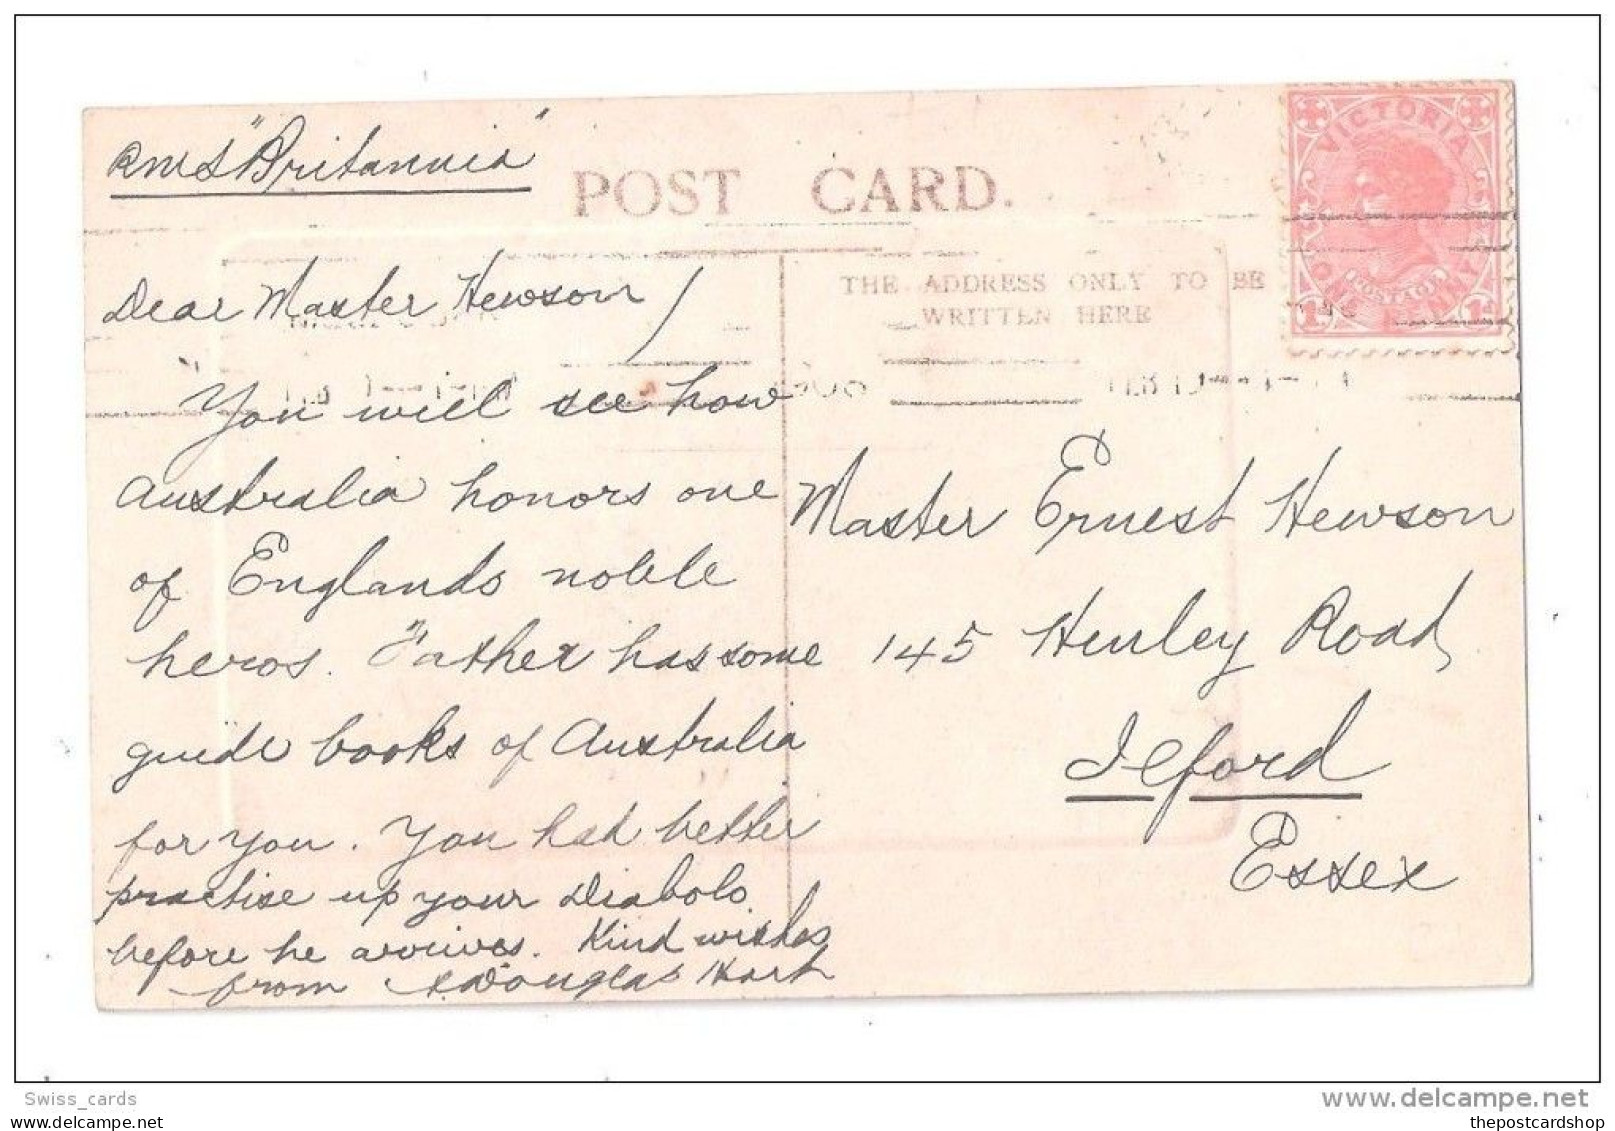 RMS "Britannia"
POST CARD.
VICTORIA
POSTAGE
ONE PENNY
1d 1d
THE ADDRESS ONLY TO BE
WRITTEN HERE
Dear Master Hewson /
You will see how
Australia honors one
of Englands noble
heros. "Father has some
guide books of Australia
for you. You had better
practise up your Diabolo
before he arrives. Kind wishes
from Douglas
Master Ernest Hewson
145 Henley Road,
Ilford
Essex
Swiss_cards
www.delcampe.net
thepostcardshop